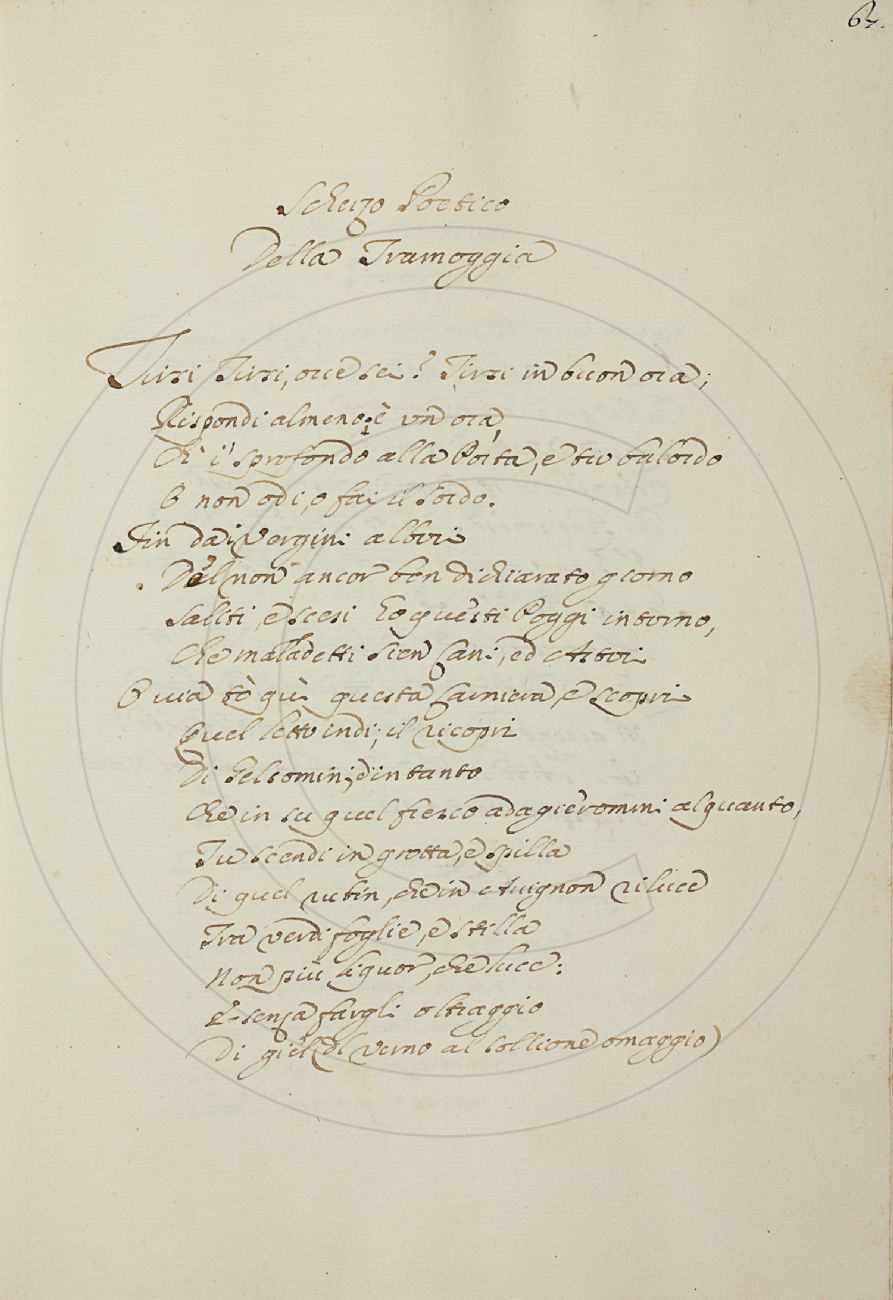 67.
Scherzo Poetico
Della Tramoggia
Tirsi Tirsi, ove sei? Tirsi in buon ora;
Rispondi almeno: è un ora,
Ch' i' sprofondo alla Porta, e tu balordo
O non odi, o fai il sordo.
Fin dai Vergini albori
Del non ancor ben dichiarato giorno
Saliti, e scesi ho questi Poggi intorno,
Che maladetti sien Cani, ed Astori
O via tò quì questa Carniera, e scopri
Quel letto indi; il ricopri
Di Gelsomini; d'intanto
Che in su quel fresco adagieromini alquanto,
Tu scendi in grotta, e spilla
Di quel rubin, che in Avignon riluce
Tra verdi foglie, e stilla
Non più liquor, che luce:
E senza fargli oltraggio
Di giel (del verno al sollione omaggio)